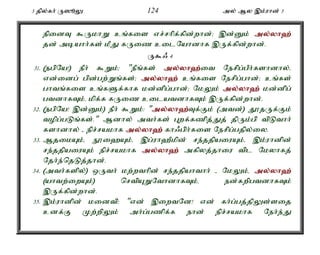 3 தில்கர் ருஸூலு 124 அல் ஆல இம்ரான் 3
நினைவு கூருமாறு உங்களை எச்சரிக்கின்றான்; இன்னும் அல்லாஹ்
தன் அடியார்கள் மீது கருணை உடையோனாக இருக்கின்றான்.
ருகூஃ 4
31. (நபியே) நீர் கூறும்; "நீங்கள் அல்லாஹ்வை நேசிப்பீர்களானால்,
என்னைப் பின்பற்றுங்கள்; அல்லாஹ் உங்களை நேசிப்பான்; உங்கள்
பாவங்களை உங்களுக்காக மன்னிப்பான்; மேலும் அல்லாஹ் மன்னிப்
பவனாகவும், மிக்க கருணை உடையவனாகவும் இருக்கின்றான்.
32. (நபியே! இன்னும்) நீர் கூறும்: "அல்லாஹ்வுக்கும் (அவன்) தூதருக்கும்
வழிப்படுங்கள்." ஆனால் அவர்கள் புறக்கணித்துத் திரும்பி விடுவார்
களானால் - நிச்சயமாக அல்லாஹ் காஃபிர்களை நேசிப்பதில்லை.
33. ஆதமையும், நூஹையும், இப்ராஹீமின் சந்ததியரையும், இம்ரானின்
சந்ததியரையும் நிச்சயமாக அல்லாஹ் அகிலத்தாரை விட மேலாகத்
தேர்ந்தெடுத்தான்.
34. (அவர்களில்) ஒருவர் மற்றவரின் சந்ததியாவார் - மேலும், அல்லாஹ்
(யாவற்றையும்) செவியுறுவோனாகவும், நன்கறிபவனாகவும்
இருக்கின்றான்.
35. இம்ரானின் மனைவி: "என் இறைவனே! என் கர்ப்பத்திலுள்ளதை
உனக்கு முற்றிலும் அர்ப்பணிக்க நான் நிச்சயமாக நேர்ந்து